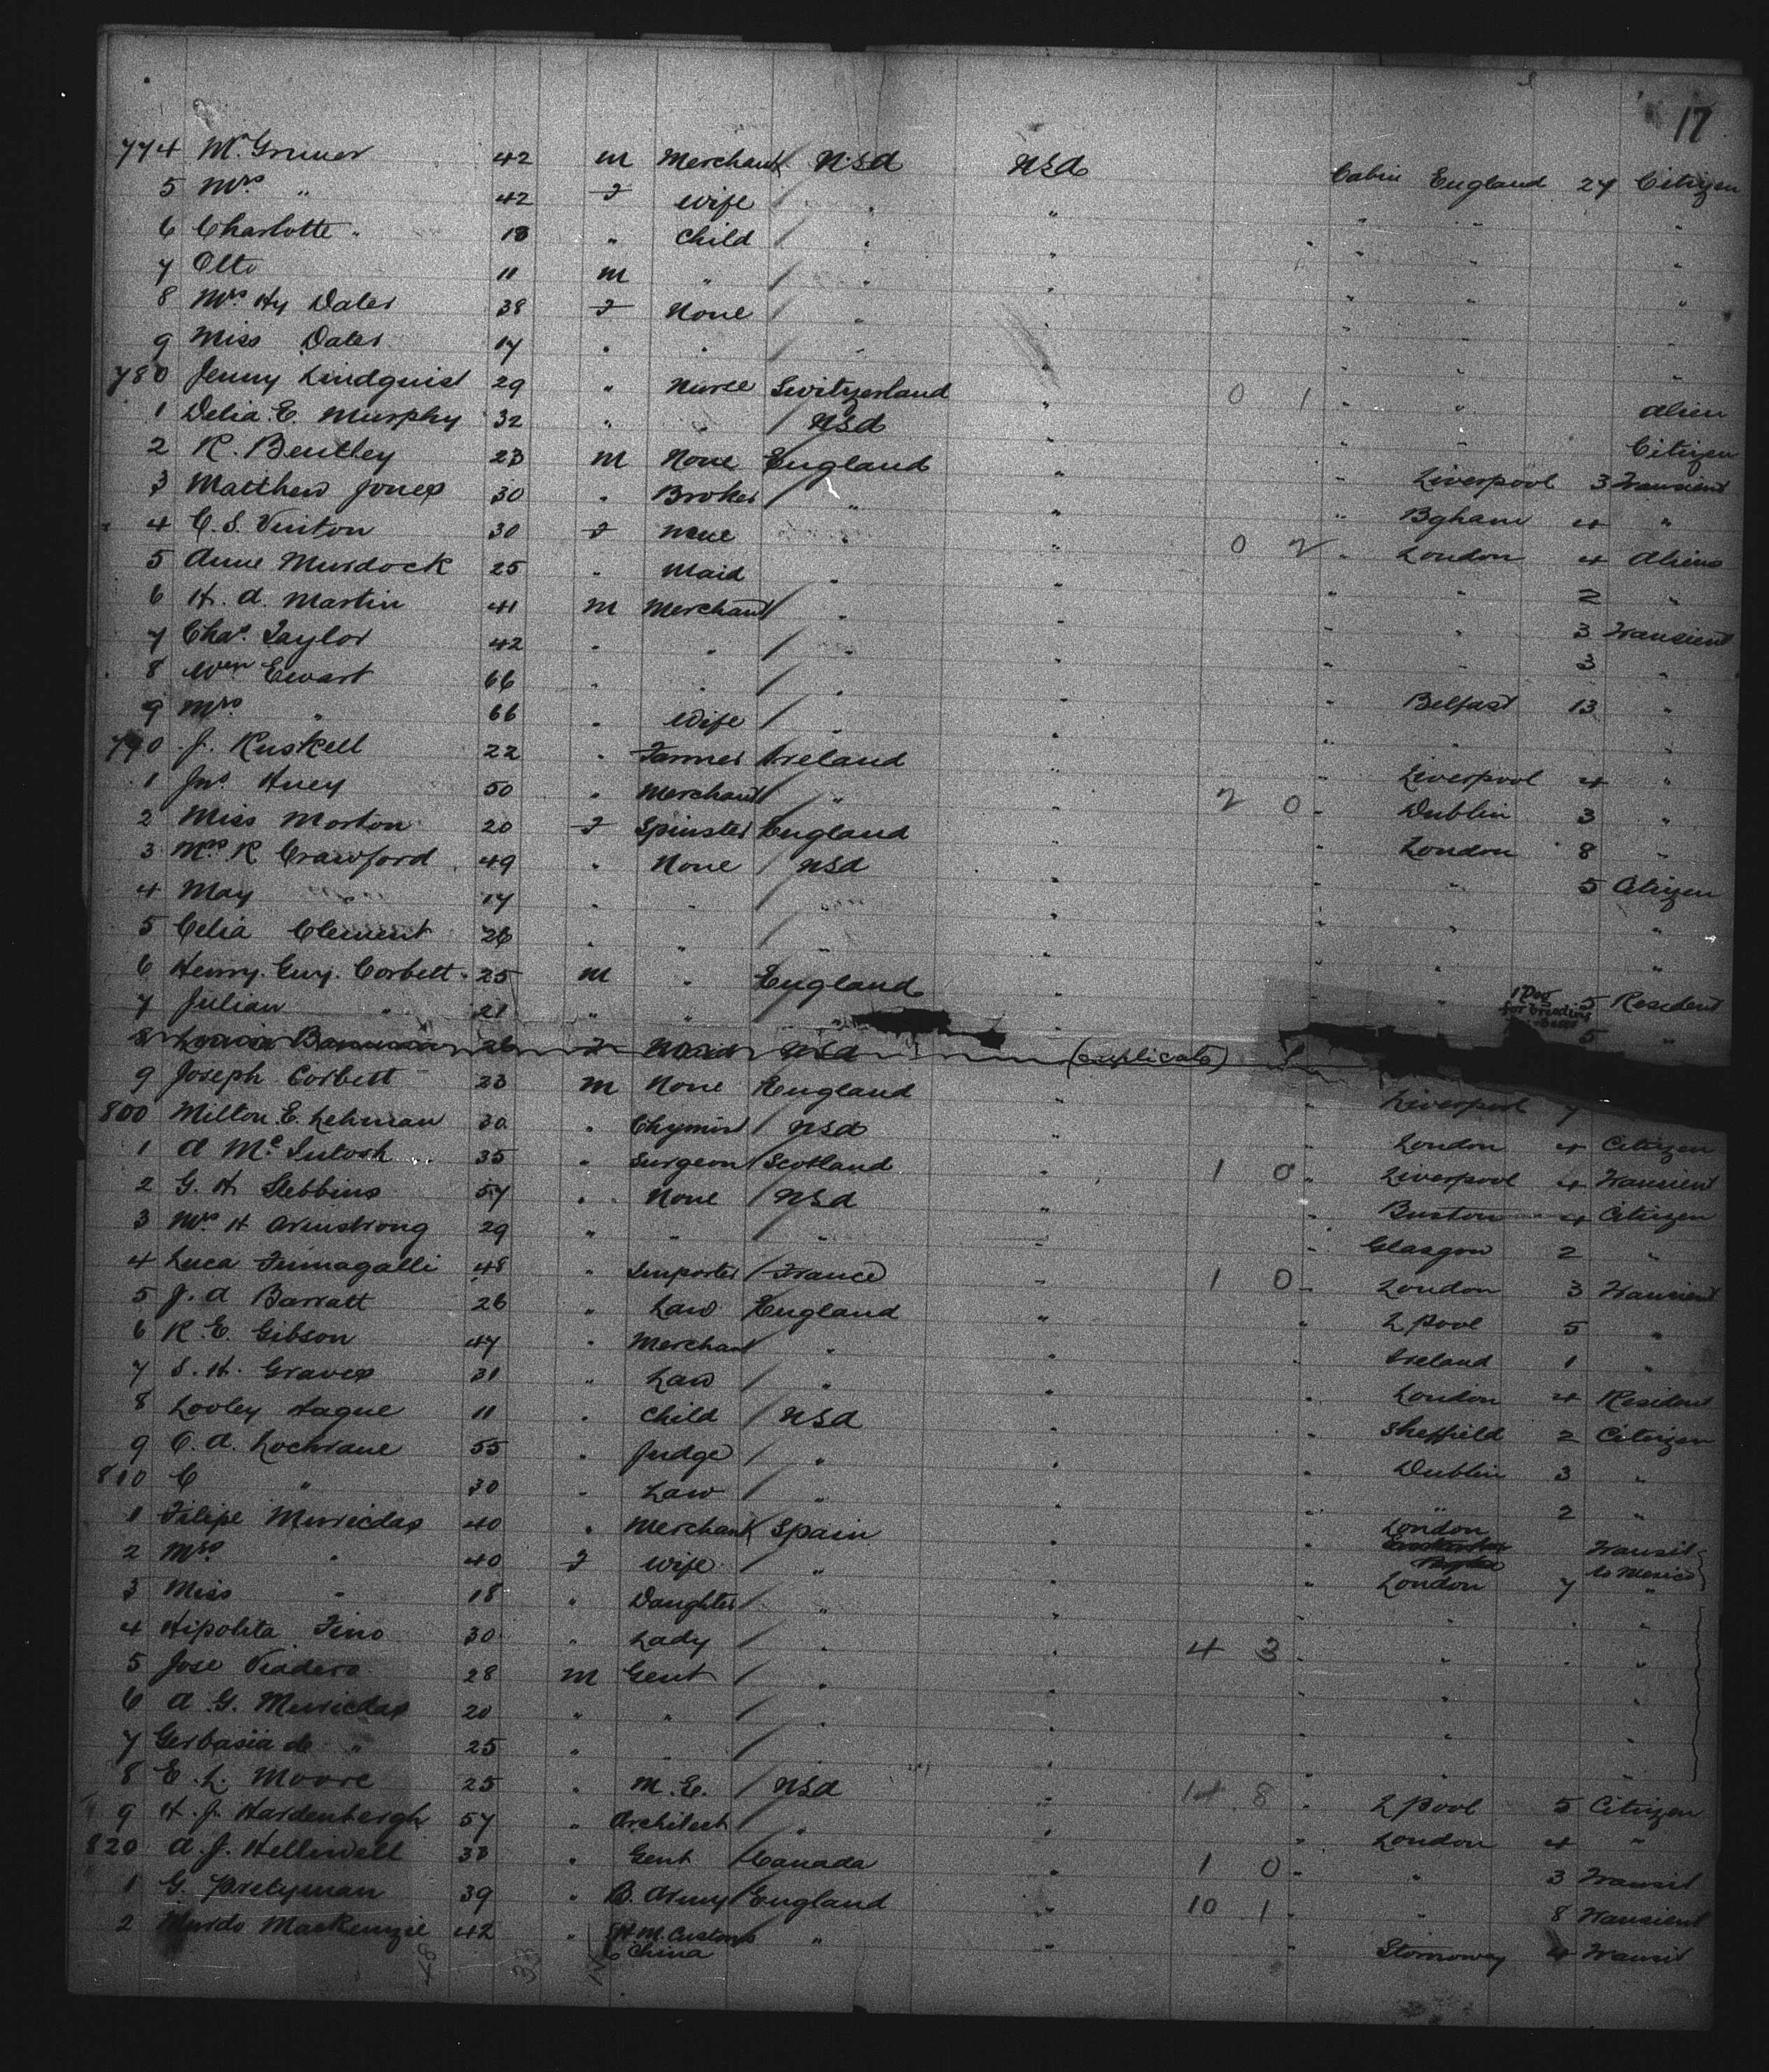 17
774 Mr. Gruner 42 m Merchant USA USA Cabin England 24 Citizen
5 Mrs " 42 f Wife " " " " "
6 Charlotte " 18 " Child " " " " "
7 Otto 11 m " " " " " "
8 Mrs Hy Dater 38 f None " " " " "
9 Miss Dater 17 " " " " " " "
780 Jenny Lindquist 29 " Nurse Switzerland " 0 1 " " Alien
1 Delia E. Murphy 32 " " USA " " " Citizen
2 R. Bentley 23 m None England " " Liverpool 3 Transient
3 Matthew Jones 30 " Broker " " " Bgham 4 "
4 C. S. Vinton 30 f None " " 0 2 " London 4 Aliens
5 Anne Murdock 25 " Maid " " " " 2 "
6 H. A. Martin 41 m Merchant " " " " 3 Transient
7 Chas. Taylor 42 " " " " " " 3 "
8 Wm Ewart 66 " " " " " Belfast 13 "
9 Mrs " 66 " Wife " " " " "
790 J. Ruskell 22 " Farmer Ireland " " Liverpool 4 "
1 Jno Huey 50 " Merchant " " 2 0 " Dublin 3 "
2 Miss Morton 20 f Spinster England " " London 8 "
3 Mrs R Crawford 49 " None USA " " " 5 Citizen
4 May " 17 " " " " " " "
5 Celia Clement 26 " " " " " " "
6 Henry. Guy. Corbett 25 m " England " " " 5 Resident
1 Dog for breeding
7 Julian " 21 " " " " 5 "
8 26 f Maid USA (duplicate)
9 Joseph Corbett 23 m None England " " Liverpool 7
800 Milton E. Lehman 30 " Chymist USA " " London 4 Citizen
1 A McIntosh 35 " Surgeon Scotland " 1 0 " Liverpool 4 Transient
2 G. H Stebbins 57 " None USA " " Buxton 4 Citizen
3 Mrs H Armstrong 29 " " " " " Glasgow 2 "
4 Luca Fumagalli 48 " Importer France " 1 0 " London 3 Transient
5 J. A Barratt 26 " Law England " " L pool 5 "
6 R. E. Gibson 47 " Merchant " " " Ireland 1 "
7 S. H. Graves 31 " Law " " " London 4 Resident
8 Looley Hague 11 " Child USA " " Sheffield 2 Citizen
9 O. A. Lochrane 55 " Judge " " " Dublin 3 "
810 E " 30 " Law " " " " 2 "
1 Filipe Muriedas 40 " Merchant Spain " " London Transit to Mexico
2 Mrs " 40 f Wife " " " London 7 "
3 Miss " 18 " Daughter " " " " "
4 Hipolita Fino 30 " Lady " " 4 3 " " "
5 Jose Viadero 28 m Gent " " " " "
6 A. G. Muriedas 20 " " " " " " "
7 Gerbasia de " 25 " " " " " "
8 E. L. Moore 25 " M. E. USA " 14 8 " L pool 5 Citizen
9 H. J. Hardenbergh 57 " Architect " " " London 4 "
820 A. J. Helliwell 38 " Gent Canada " 1 0 " " 3 Transit
1 G. Pretyman 39 " B. Army England " 10 1 " " 8 Transient
2 Murdo MacKenzie 42 " H. M. Customs China " " " Stornoway 4 Transit